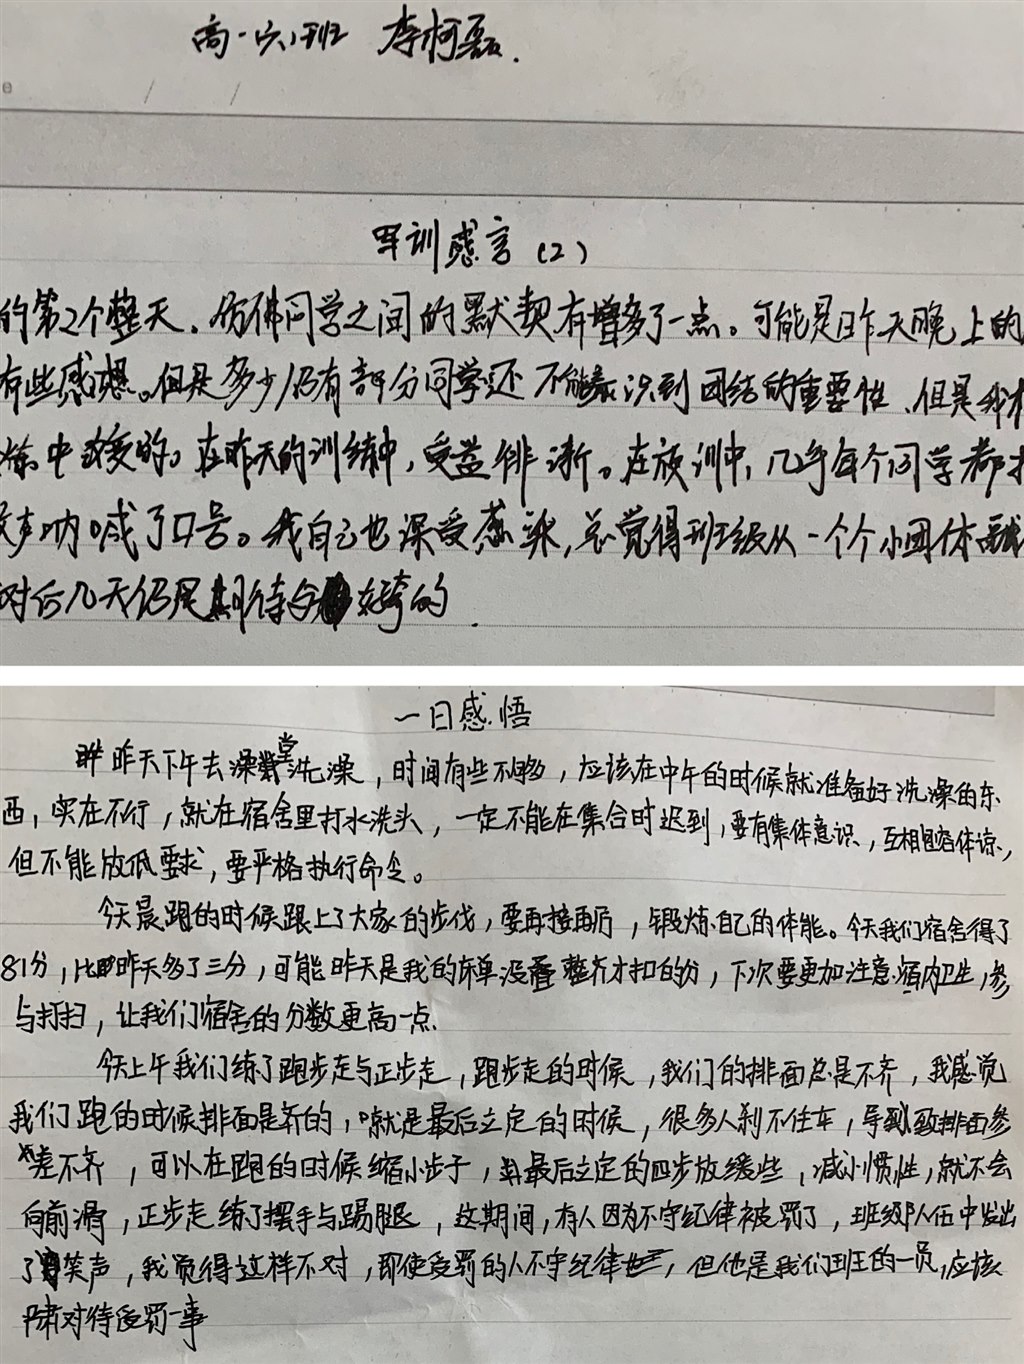 高一六班 李柯磊.
军训感言(2)
的第2个整天、仿佛同学之间的默契有增多了一点。可能是昨天晚上的
有些感想。但是多少仍有部分同学还不能识到团结的重要性、但是我
炼中改变的。在昨天的训练中,受益徘渐。在放训中,几乎每个同学都
声呐喊了口号。我自己也深受感染,总觉得班级从一个个小团体
对后几天仍是期待与好的.
一日感悟
昨天下午去澡堂洗澡,时间有些不够,应该在中午的时候就准备好洗澡的东
西,实在不行,就在宿舍里打水洗头,一定不能在集合时迟到,要有集体意识,互相体谅,
但不能放低要求,要严格执行命令。
今天晨跑的时候跟上了大家的步伐,要再接再厉,锻炼自己的体能。今天我们宿舍得了
81分,比昨天多了三分,可能昨天是我的床单没叠整齐才扣的分,下次要更加注意宿内卫生,参
与打扫,让我们宿舍的分数更高一点.
今天上午我们练了跑步走与正步走,跑步走的时候,我们的排面总是不齐,我感觉
我们跑的时候排面是齐的,就是最后立定的时候,很多人刹不住车,导致排面参
差不齐,可以在跑的时候缩小步子,最后立定的四步放缓些,减小惯性,就不会
向前滑,正步走练了摆手与踢腿,这期间,有人因为不守纪律被罚了,班级队伍中发出
了笑声,我觉得这样不对,即使受罚的人不守纪律,但他是我们班的一员,应该
肃对待受罚一事